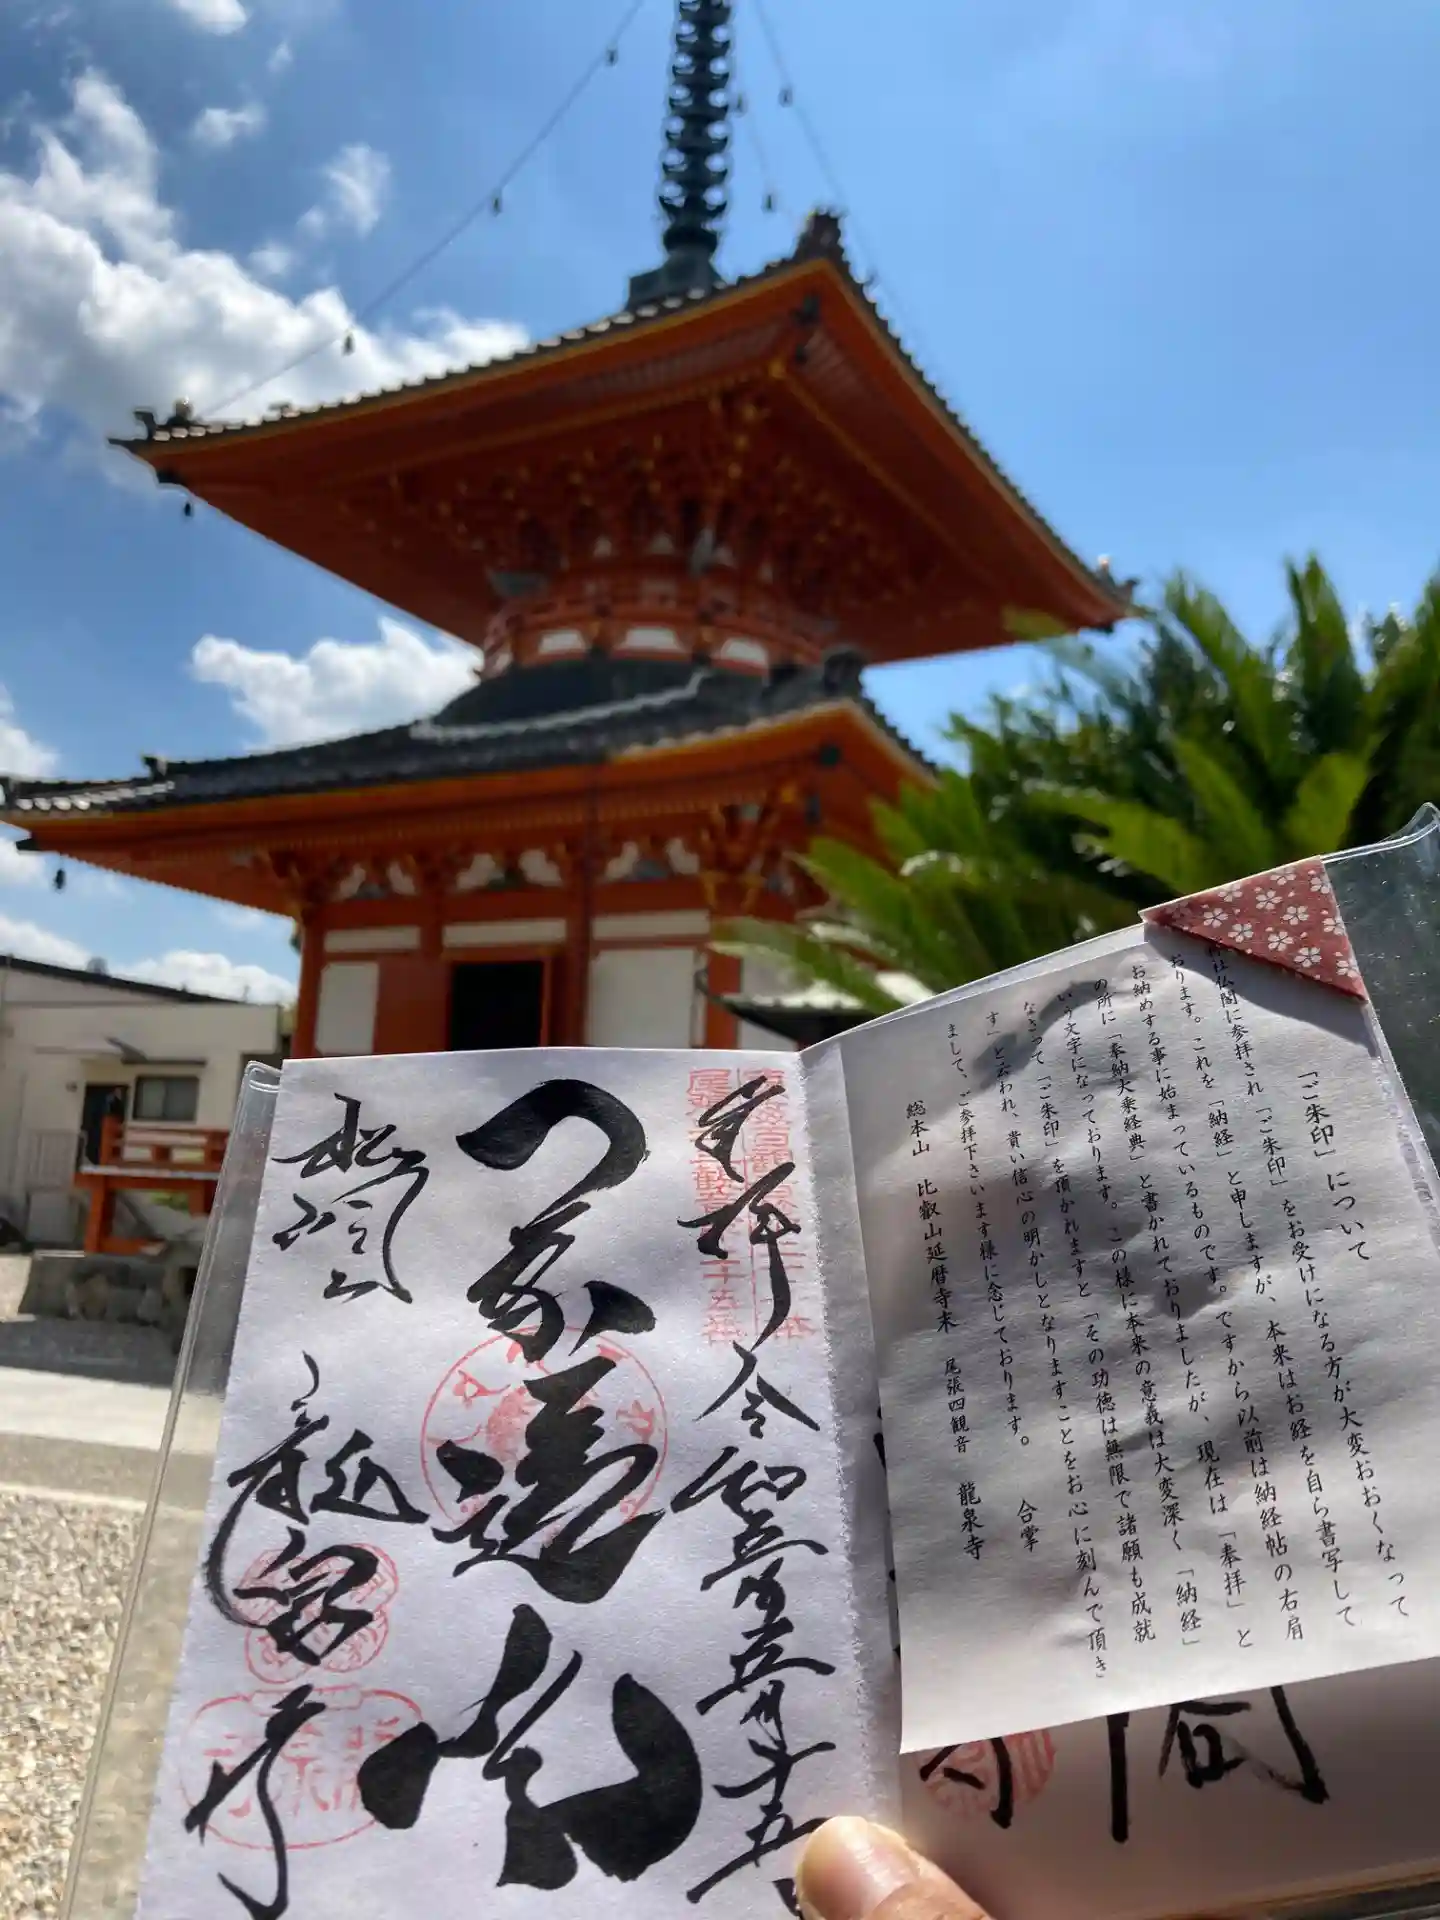 「ご朱印」について
神社仏閣に参拝され「ご朱印」をお受けになる方が大変おおくなって
おります。これを「納経」と申しますが、本来はお経を自ら書写して
お納めする事に始まっているものです。ですから以前は納経帖の右肩
の所に「奉納大乗経典」と書かれておりましたが、現在は「奉拝」と
いう文字になっております。この様に本来の意義は大変深く「納経」
なさって「ご朱印」を頂かれますと「その功徳は無限で諸願も成就
す」と云われ、貴い信心の明かしとなりますことをお心に刻んで頂き
まして、ご参拝下さいます様に念じております。
合掌
総本山 比叡山延暦寺末 尾張四観音 龍泉寺
奉拝 令和五年五月十五
松洞山
龍泉寺